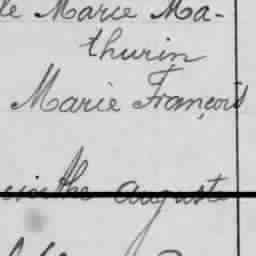 le Marie Ma-
thurin
Marie François
cinthe Auguste